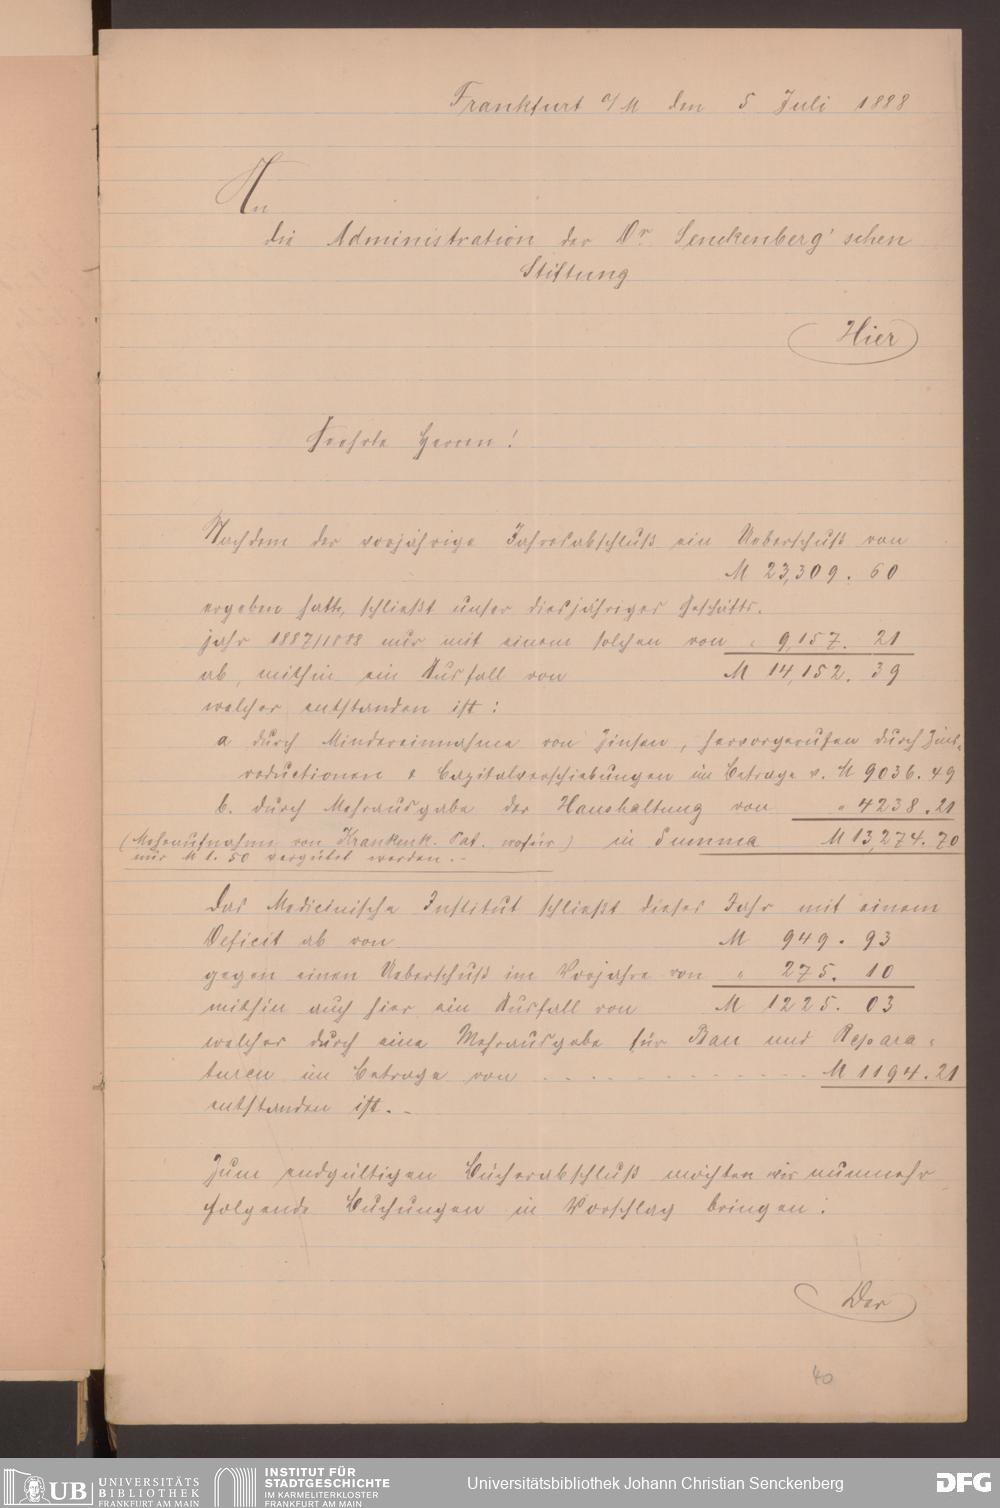 Frankfurt a/M den 5 Juli 1888
An
die Administration der Dr. Senckenberg'schen
Stiftung
Hier
Geehrte Herren!
Nachdem der vorjährige Jahresabschluß ein Ueberschuß von
M 23,309. 60
ergeben hatte, schließt unser diesjähriges Geschäfts-
jahr 1887/1888 nur mit einem solchen von " 9,157. 21
ab, mithin ein Ausfall von M 14,152. 39
welcher entstanden ist:
a durch Mindereinnahme von Zinsen, hervorgerufen durch Zins-
reductionen & Capitalverschiebungen im Betrage v. M 9036. 49
b. durch Mehrausgabe der Haushaltung von " 4238. 21
(Mehraufnahme von Krankenk. Pat. wofür) in Summa M 13,274. 70
nur M 1. 50 vergütet werden.-
Das Medicinische Institut schließt dieses Jahr mit einem
Deficit ab von M 949. 93
gegen einen Ueberschuß im Vorjahre von " 275. 10
mithin auch hier ein Ausfall von M 1225. 03
welcher durch eine Mehrausgabe für Bau und Repara-
turen im Betrage von M 1194. 21
entstanden ist.-
Zum endgültigen Bücherabschluß möchten wir nunmehr
folgende Buchungen in Vorschlag bringen:
Der
40
UB UNIVERSITÄTS
BIBLIOTHEK
FRANKFURT AM MAIN
INSTITUT FÜR
STADTGESCHICHTE
IM KARMELITERKLOSTER
FRANKFURT AM MAIN
Universitätsbibliothek Johann Christian Senckenberg
DFG